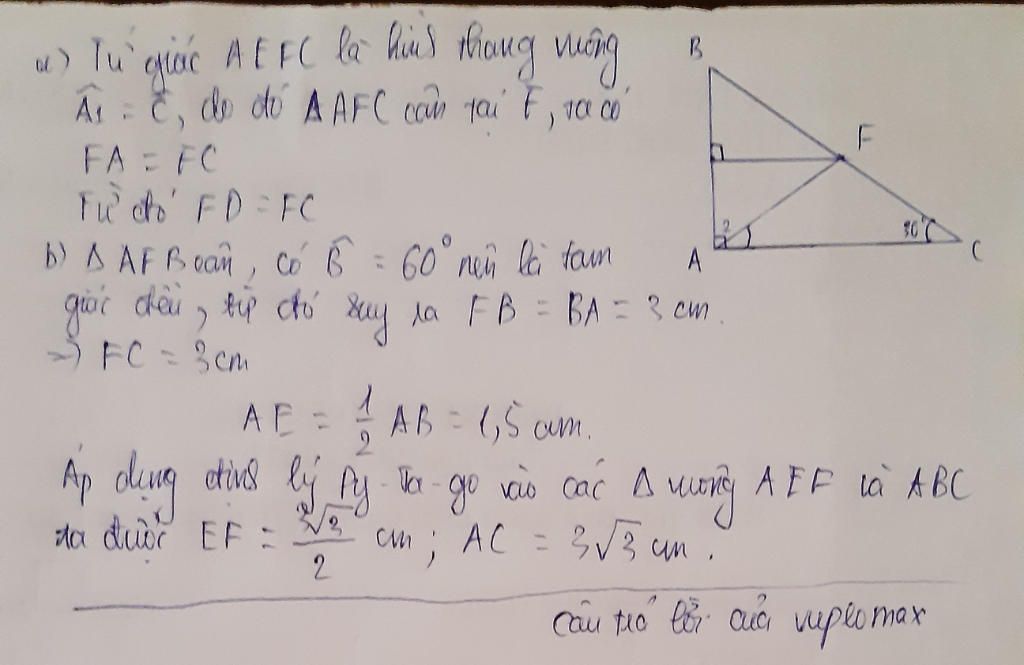 a) Tứ giác AEFC là hình thang vuông
Â1 = Ĉ, do đó ΔAFC cân tại F, ta có
FA = FC
Từ đó FD = FC
b) Δ AFB cân, có B̂ = 60° nên là tam
giác đều, từ đó suy ra FB = BA = 3 cm.
=> FC = 3cm
AE = 1/2 AB = 1,5 cm.
Áp dụng định lý Py-Ta-go vào các Δ vuông AEF và ABC
ta được EF = 3√3/2 cm; AC = 3√3 cm.
câu trả lời của
B
F
2
A
30°
C